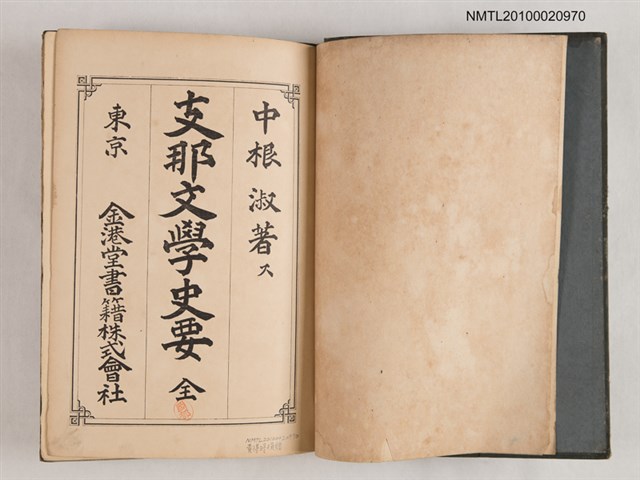 NMTL20100020970
中根淑著ス
支那文學史要 全
東京 金港堂書籍株式會社